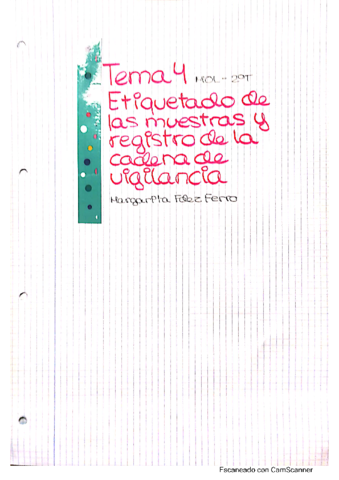 Tema 4 MOL-2ºT
Etiquetado de
las muestras y
registro de la
cadena de
vigilancia
Margarita Fdez Ferro
Escaneado con CamScanner